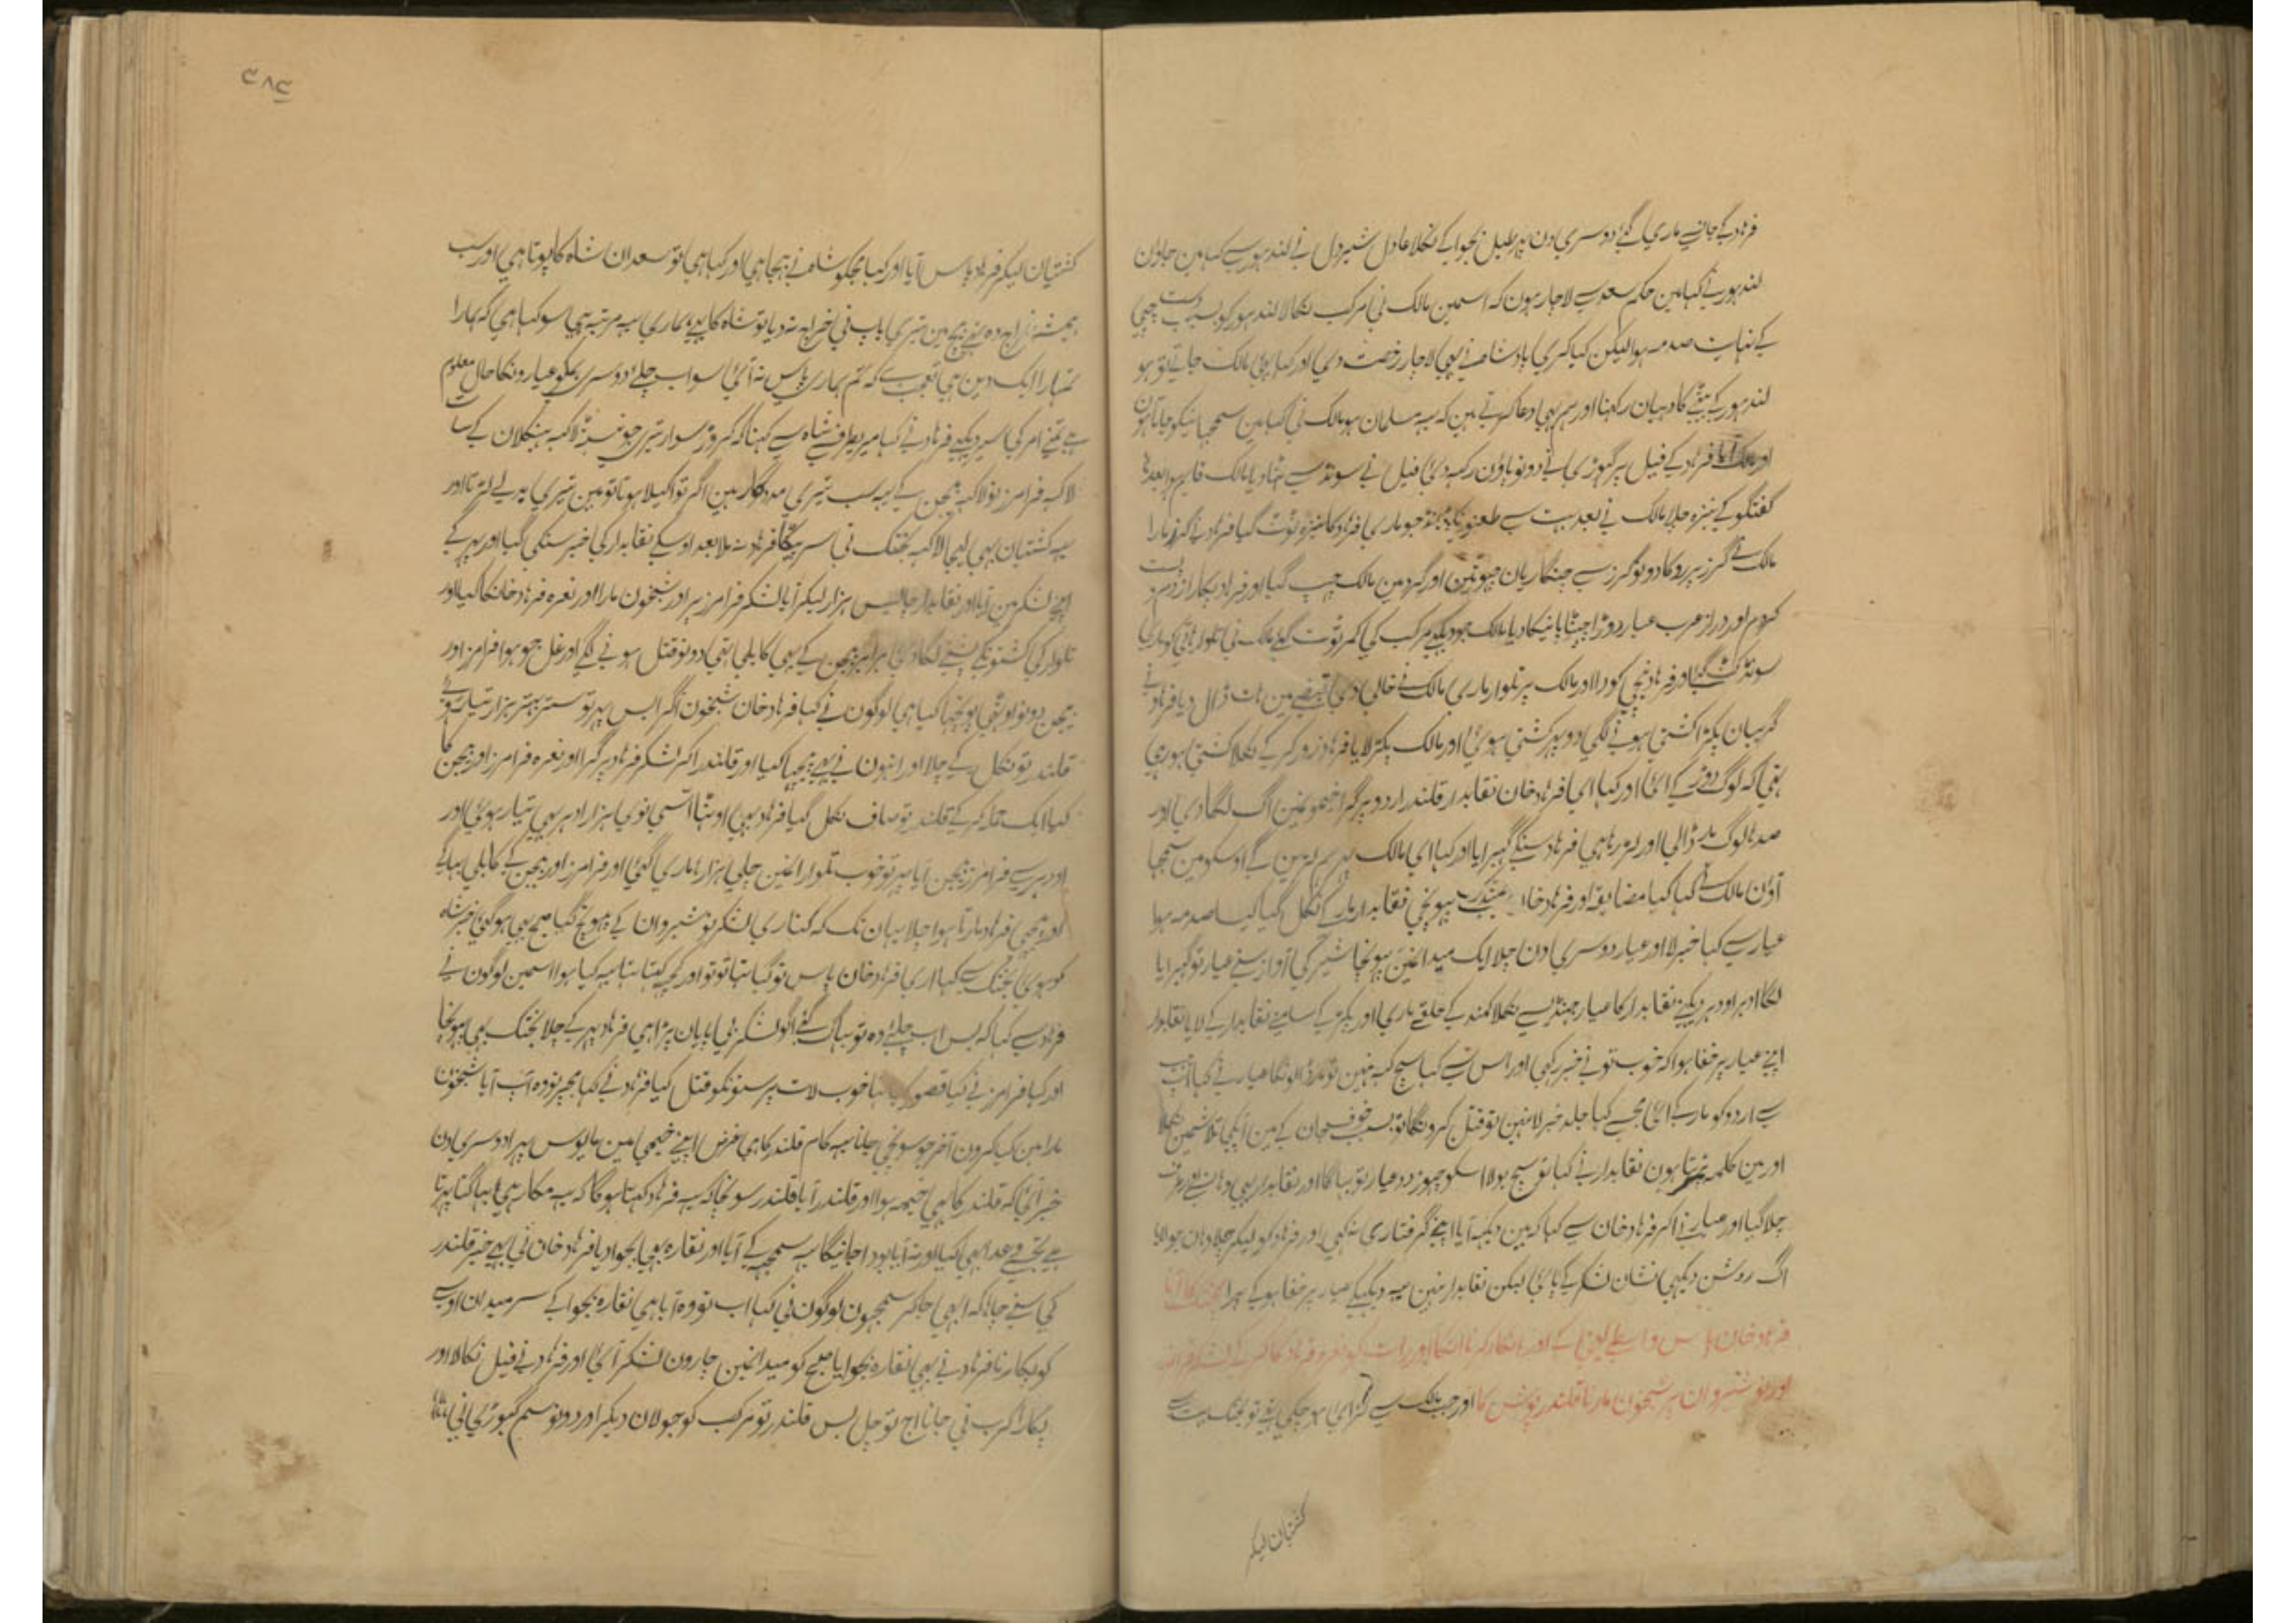 فرہاد کے جانسے ماری گئے دوسری دن پہر طبل بجوا کے نکلا عادل شیر دل نے لندہور سے کہا مین جاون
لندہور نے کہا مین حکم سعد سے لاچار ہون کہ اسمین مالک نی مرکب نکالا لندہور کو
کے نہایت صدمہ ہوا لیکن کیا کری بادشاہ نے بہی لاچار رخصت دی اور کہا بہئی مالک جاتے تو ہو
لندہور کے بیٹے کا دہیان رکہنا اور ہم بہی دعا کرتے ہین کہ یہ مسلمان ہو مالک نی کہا مین سمجہا نیکو جاتا ہون
اور مالک آیا فرہاد کے فیل پر گہوڑی نے دونو پاؤن رکہہ دئی فیل نے سونڈ سے ہٹا دیا مالک قایم ہوا بعد
گفتگو کے نیزہ چلا مالک نے بعد بہت سے طعنو جو ماری فرہاد کا نیزہ ٹوٹ گیا فرہاد نے گرز مارا
مالک نے گرز پر روکا دونو گرز سے چنگاریان چہوٹین اور گرد مین مالک چہپ گیا اور فرہاد پکارا زدم و پست
کردم اور دراز عرب عیار دوڑا چہنٹا پانیکا دیا مالک جو دیکہے مرکب کی کمر ٹوٹ گئی مالک نی تلوار ہاتی کو ماری
سونڈ کٹ گئی اور فرہاد نیچی کودا اور مالک پر تلوار ماری مالک نے خالی دی قبضے مین ہات ڈال دیا فرہاد نے
گریبان پکڑا کشتی ہونے لگی دو پہر کشتی ہوئی اور مالک پکڑ لایا فرہاد زور کر کے نکلا کشتی ہو رہی
تہی کہ لوگ دوڑ کے آئی اور کہا ای فرہاد خان نقابدار قلندر اردو پر گرا خیمو نمین آگ لگا دی اور
صدہا لوگ مار ڈالی اور لڑ رہا ہی فرہاد سنکے گہبرایا اور کہا ای مالک پہر ہم لڑین گے اوسکو مین سمجہا
آؤن مالک نے کہا کیا مضایقہ اور فرہاد خان پہونچی نقابدار مار کے نکل گیا کیا صدمہ ہوا
عیار سے کہا خبر لا اور عیار دوسری دن چلا ایک میدانمین پہونچا شیر کی آواز سنے عیار تو گہبرایا
لگا ادہر اودہر دیکہنے نقابدار کا عیار جہنڈ سے نکلا کمند کے حلقے ماری اور پکڑ کے سامنے نقابدار کے لایا نقابدار
اپنے عیار پر خفا ہوا کہ خوب تونے خبر رکہی اور اس سے کہا سچ کہہ نہین تو مار ڈالونگا عیار نے کہا آپ
سے اردو کو مار کے آئی مجہے کہا جلد خبر لا نہین تو قتل کرونگا تو بسبب خوف جان کے مین آپکی تلاشمین نکلا
اور مین کلمہ پڑہتا ہون نقابدار نے کہا تو سچ بولا اسکو چہوڑ دو عیار تو بہاگا اور نقابدار بہی وہانسے
چلا گیا اور عیار نے آکر فرہاد خان سے کہا کہ مین دیکہہ آیا اپنے گرفتاری نہ کہی اور فرہاد کو لیکر چلا وہان جو آیا
آگ روشن دیکہی نشان لشکر کے پائی لیکن نقابدار نہین یہ دیکہکے عیار پر خفا ہوکے پہرا بختک کا آنا
فرہاد خان پاس واسطے لینی کے اور انکار کرنا اسکا اور رات کو نعرہ فرہاد کا کر کے لشکر فرامرز
اور نوشیروان پر شبخون مارنا قلندر پوش کا اور جب مالک سے لڑائی ہو چکی تہی تو بختک بہت سے
کشتیان لیکر
۳۸۴
کشتیان لیکر فرہاد پاس آیا اور کہا مجکو شاہ نے بہیجا ہی اور کہا ہی تو سعدان شاہ کا پوتا ہی اور سب
ہمیشہ خراج دہ تہے بیچ مین تیری باپ نی خراج نہ دیا تو شاہ کا ہے ہماری یہ مرتبہ ہی سو کہا ہی کہ ہمارا
تمہارا ایک دین ہی تعجب ہے کہ تم ہماری پاس نہ آئی سو اب چلئے دوسری ہمکو عیارونکا حال معلوم
ہے تمنے ام کی سیر دیکہے فرہاد نے کہا میریطرف سے شاہ سے کہنا کہ کروڑ سوار تیری لاکہہ بینکلان کے سات
لاکہہ فرامرز نو لاکہہ بیجن کے یہ سب تیری مددگار ہین اگر تو اکیلا ہوتا تو مین تیری لیے لڑتا اور
یہ کشتیان بہی لیجا لاکہہ بختک نی سر پٹکا فرہاد نہ ملا بعد اوسکے نقابدار کی خبر سنکی گیا اور پہر کے
اپنے لشکر مین آیا اور نقابدار چالیس ہزار لیکر آیا لشکر فرامرز پر اور شبخون مارا اور نعرہ فرہاد خانکا کیا اور
تلوار کی کشتونکے پشتے لگا دئی فرامرز بیجن کے بہی کابلی تہی دونو قتل ہونے لگے اور غل جو ہوا فرامرز اور
بیجن دونو اوٹہی پوچہا کیا ہی لوگون نے کہا فرہاد خان شبخون گرا بس پہر تو ستر بہتر ہزار تیار ہوئے
قلندر تو نکل کے چلا اور انہون نے پیچہا کیا اور قلندر آکر لشکر فرہاد پر گرا اور نعرہ فرامرز اور بیجن کا
کیا لیکن قتال کر کے قلندر تو صاف نکل گیا فرہاد بہی اوٹہا اسی نوی ہزار ادہر بہی تیار ہوئی اور
اودہر سے فرامرز بیجن آیا پہر تو خوب تلوار انمین چلی ہزارہا ماری گئی اور فرامرز اور بیجن کے کابلی بہاگے
فرہاد مارتا ہوا چلا یہان تک کہ کناری لشکر نوشیروان کے پہونچ گیا صبح بہی ہو گئی خبر شاہ
کو ہوئی بختک سے کہا اری فرہاد خان پاس تو گیا تہا تو تو اور کچہ کہتا تہا یہ کیا ہوا اسمین لوگون نے
فرہاد سے کہا کہ بس اب چلئے وہ تو بہاگ گئے آگو لشکر بی پایان پڑا ہی فرہاد پہر کے چلا بختک بہی پہونچا
اور کہا فرامرز نے کیا قصور کیا تہا خوب لات پرستونکو قتل کیا فرہاد نے کہا مجپر تو وہ آپ آیا شبخون
مارا مین کیا کرون آخر جو سونچی جانا یہ کام قلندر کا ہی غرض اپنے خیمی مین مایوس پہرا دوسری دن
خبر آئی کہ قلندر کا بہی خیمہ ہوا اور قلندر آیا قلندر سونچا کہ یہ فرہاد کہتا ہوگا کہ یہ مکار ہی بہاگتا پہرتا
ہے وعدا بہی کیا اور نہ آیا بودا جانیگا یہ سمجہہ کے آیا اور نقارہ بہی بجوا دیا فرہاد خان نی بہی خبر قلندر
کی سنے چاہا کہ ابہی جا کر سمجہون لوگون نی کہا اب تو وہ آیا ہی نقارہ بجوا کے سر میدان اوسے
کو پکارنا فرہاد نے بہی نقارہ بجوایا صبح کو میدانمین چارون لشکر آئی اور فرہاد نے فیل نکالا اور
پکارا کرب نی جانا آج تو چل بس قلندر تو مرکب کو جولان دیکر اور دونو سم گہوڑی نی